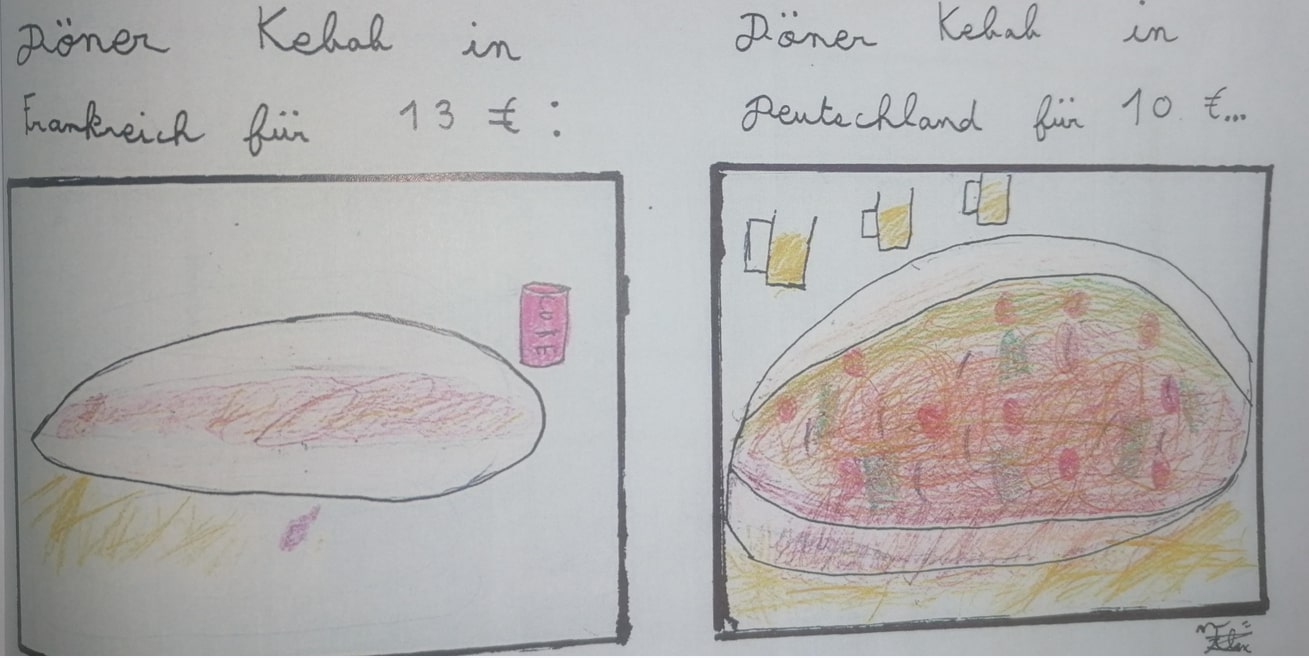 Döner Kebab in
Frankreich für 13 €:
Döner Kebab in
Deutschland für 10 €...
COKE